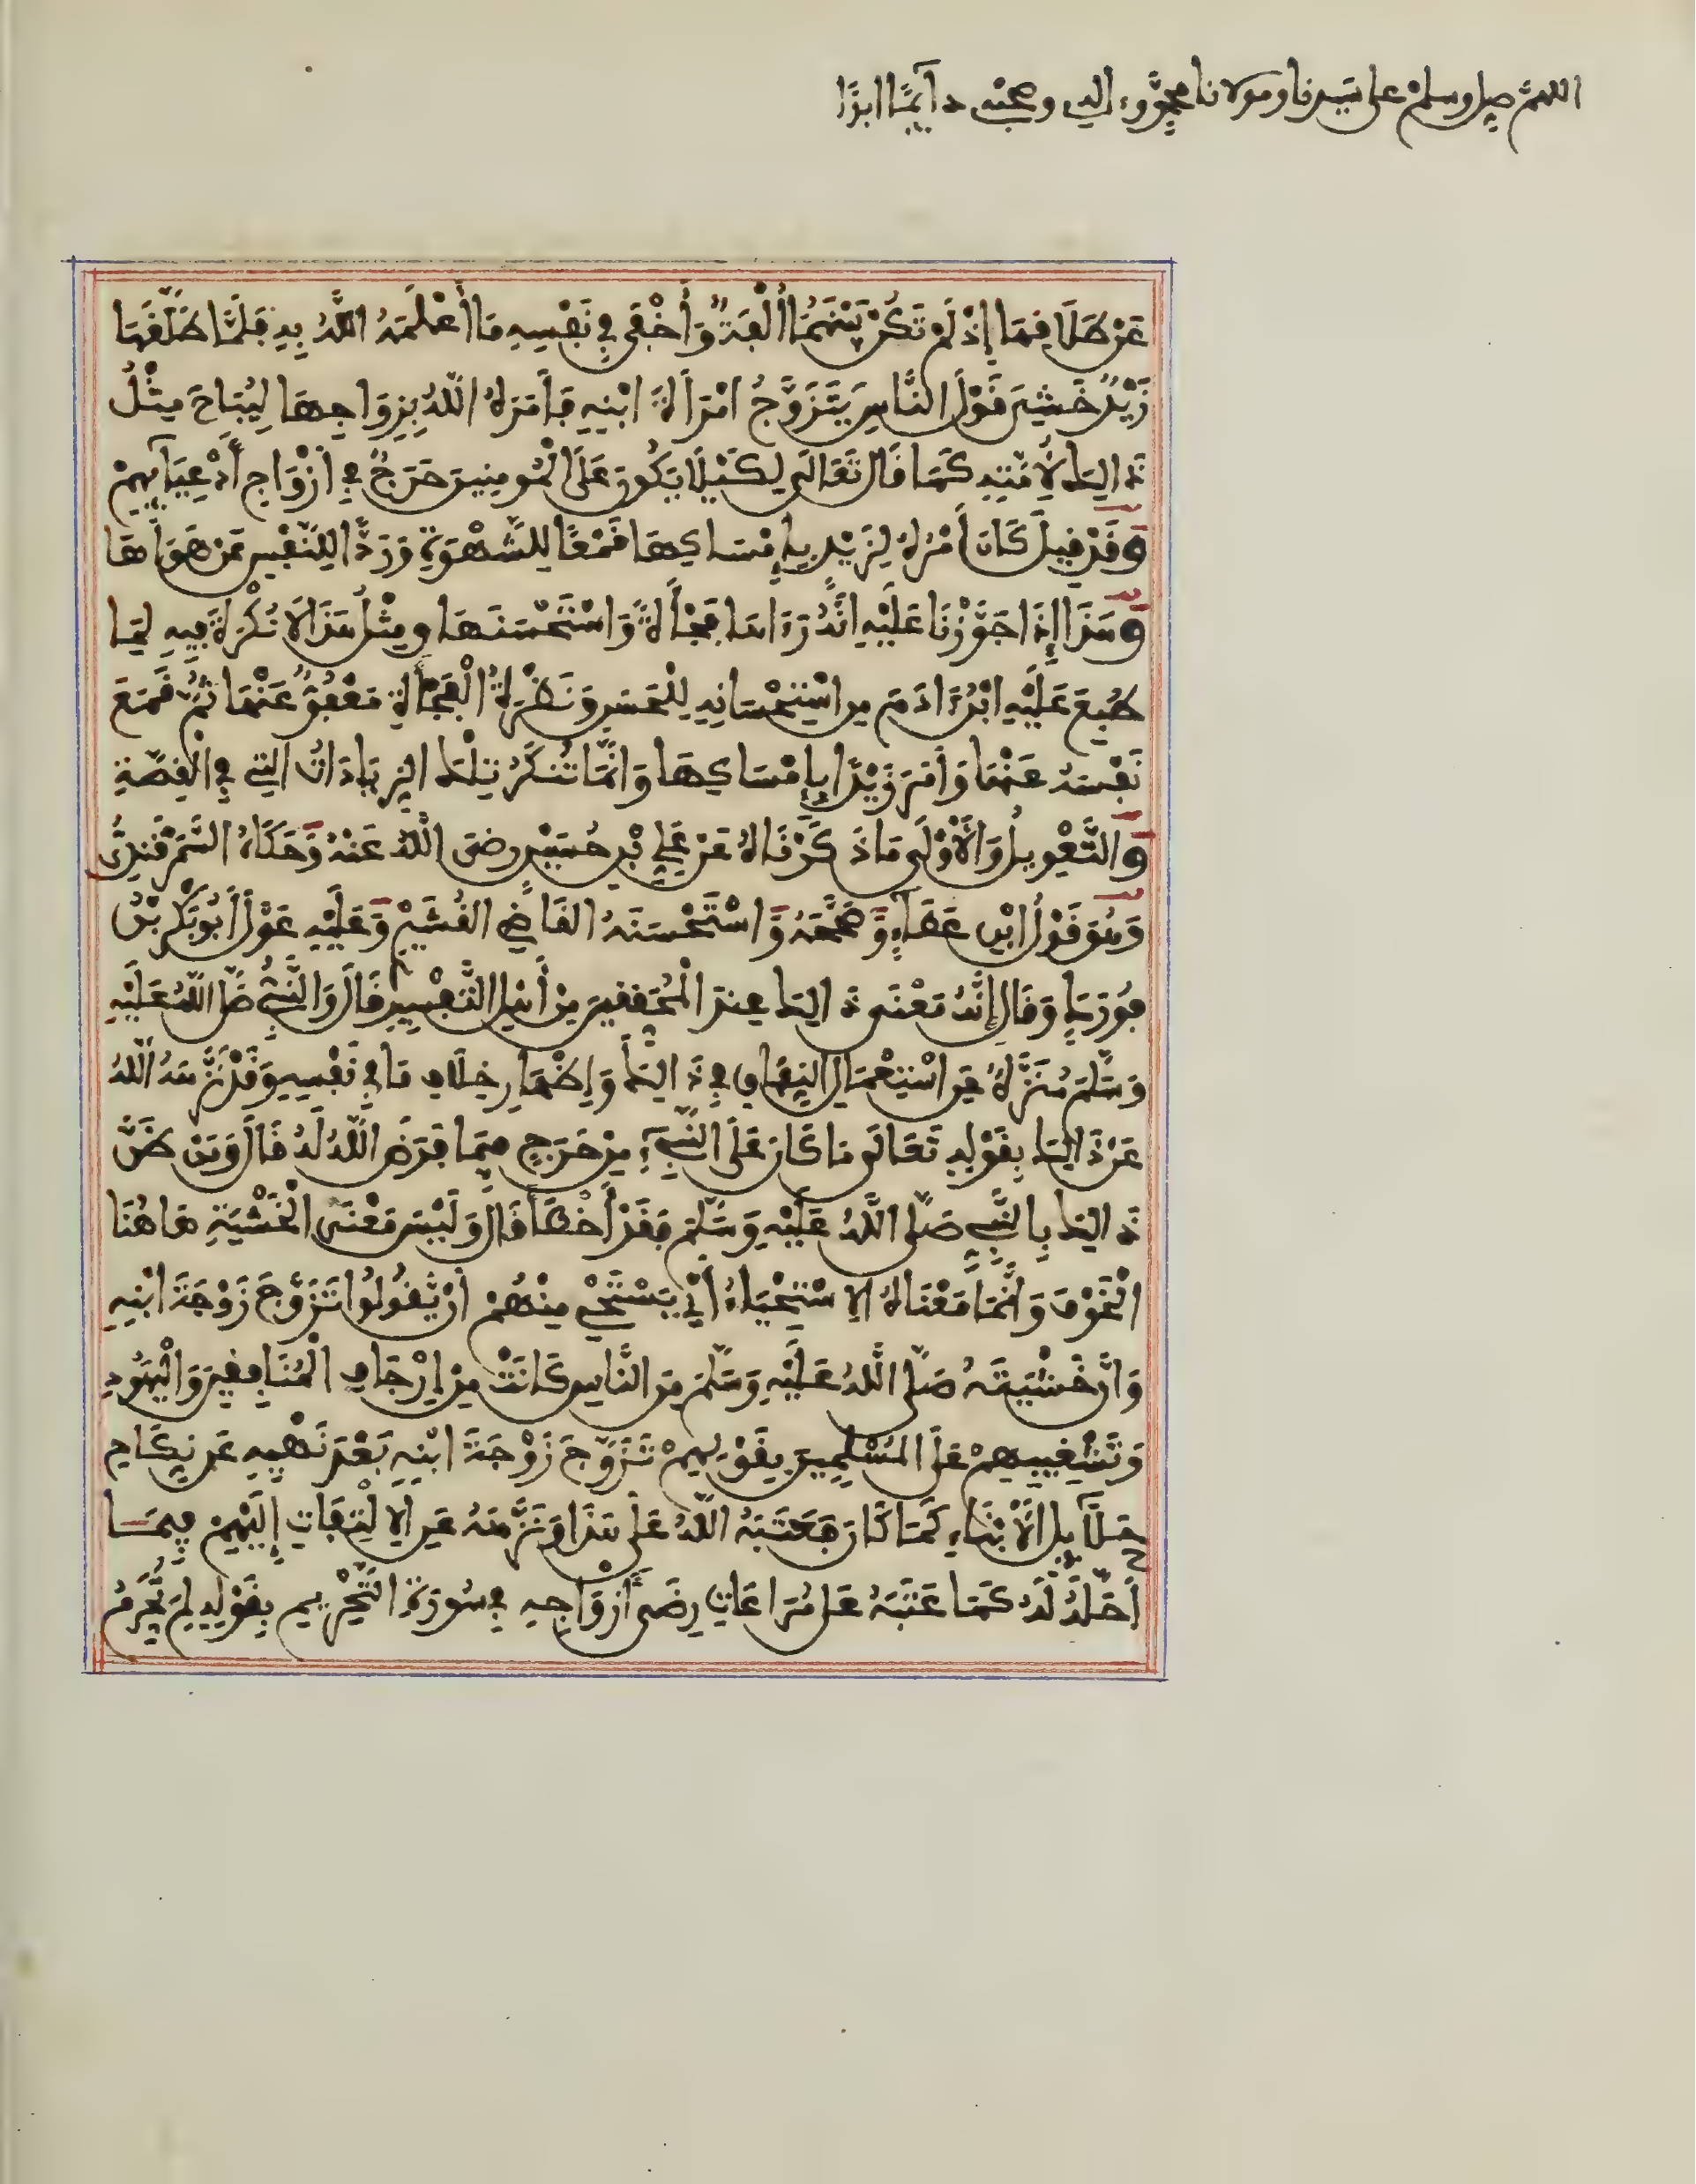 اللهم صل وسلم على سيدنا ومولانا محمد وءاله وصحبه دآيما ابدا
عَنْ طَلَاقِهَا إِذْ لَمْ تَكُنْ بَيْنَهُمَا أُلْفَةٌ وَأَخْفَى فِي نَفْسِهِ مَا أَعْلَمَهُ اللَّهُ بِهِ فَلَمَّا طَلَّقَهَا
زَيْدٌ خَشِيَ قَوْلَ النَّاسِ يَتَزَوَّجُ امْرَأَةَ ابْنِهِ فَأَمَرَهُ اللَّهُ بِزِوَاجِهَا لِيُبَاحَ مِثْلُ
ذَالِكَ لِأُمَّتِهِ كَمَا قَالَ تَعَالَى لِكَيْلَا يَكُونَ عَلَى الْمُومِنِينَ حَرَجٌ فِي أَزْوَاجِ أَدْعِيَآئِهِمْ
وَقَدْ قِيلَ كَانَ أَمْرُهُ لِزَيْدٍ بِإِمْسَاكِهَا قَمْعًا لِلشَّهْوَةِ وَرَدًّا لِلنَّفْسِ عَنْ هَوَاهَا
وَهَذَا إِذَا جَوَّزْنَا عَلَيْهِ أَنَّهُ رَءَاهَا فَجْأَةً وَاسْتَحْسَنَهَا وَمِثْلُ هَذَا لَا نُكْرَةَ فِيهِ لِمَا
طُبِعَ عَلَيْهِ ابْنُ ءَادَمَ مِنِ اسْتِحْسَانِهِ لِلْحَسَنِ وَنَظْرَةُ الْفَجْأَةِ مَعْفُوٌّ عَنْهَا ثُمَّ قَمَعَ
نَفْسَهُ عَنْهَا وَأَمَرَ زَيْدًا بِإِمْسَاكِهَا وَإِنَّمَا تُنْكَرُ تِلْكَ الزِّيَادَاتُ الَّتِي فِي الْقِصَّةِ
وَالتَّعْوِيلُ وَالْأَوْلَى مَا ذَكَرْنَاهُ عَنْ عَلِيِّ بْنِ حُسَيْنٍ رضي اللَّهُ عَنْهُ وَحَكَاهُ السَّمَرْقَنْدِيُّ
وَهُوَ قَوْلُ ابْنِ عَطَآءٍ وَصَحَّحَهُ وَاسْتَحْسَنَهُ الْقَاضِي الْقُشَيْرِ وَعَلَيْهِ عَوَّلَ أَبُو بَكْرِ بْنُ
فُورَكٍ وَقَالَ إِنَّهُ مَعْنَى ذَالِكَ عِنْدَ الْمُحَقِّقِينَ مِنْ أَهْلِ التَّفْسِيرِ قَالَ وَالنَّبِيُّ صَلَّى اللَّهُ عَلَيْهِ
وَسَلَّمَ مُنَزَّهٌ عَنِ اسْتِعْمَالِ النِّفَاقِ فِي ذَالِكَ وَإِظْهَارِ خِلَافِ مَا فِي نَفْسِهِ وَقَدْ نَزَّهَهُ اللَّهُ
عَنْ ذَالِكَ بِقَوْلِهِ تَعَالَى مَا كَانَ عَلَى النَّبِيءِ مِنْ حَرَجٍ فِيمَا فَرَضَ اللَّهُ لَهُ قَالَ وَمَنْ ظَنَّ
ذَالِكَ بِالنَّبِيِّ صَلَّى اللَّهُ عَلَيْهِ وَسَلَّمَ فَقَدْ أَخْطَأَ قَالَ وَلَيْسَ مَعْنَى الْخَشْيَةِ هَاهُنَا
الْخَوْفَ وَإِنَّمَا مَعْنَاهُ الِاسْتِحْيَاءُ أَيْ يَسْتَحْيِ مِنْهُمْ أَنْ يَقُولُوا تَزَوَّجَ زَوْجَةَ ابْنِهِ
وَأَنَّ خَشْيَتَهُ صَلَّى اللَّهُ عَلَيْهِ وَسَلَّمَ مِنَ النَّاسِ كَانَتْ مِنْ إِرْجَافِ الْمُنَافِقِينَ وَالْيَهُودِ
وَتَشْغِيبِهِمْ عَلَى الْمُسْلِمِينَ بِقَوْلِهِمْ تَزَوَّجَ زَوْجَةَ ابْنِهِ بَعْدَ نَهْيِهِ عَنْ نِكَاحِ
حَلَآئِلِ الْأَبْنَاءِ كَمَا كَانَ فَعَتَبَهُ اللَّهُ عَلَى هَذَا وَنَزَّهَهُ عَنِ الِالْتِفَاتِ إِلَيْهِمْ فِيمَا
أَحَلَّهُ لَهُ كَمَا عَتَبَهُ عَلَى مُرَاعَاتِ رِضَى أَزْوَاجِهِ فِي سُورَةِ التَّحْرِيمِ بِقَوْلِهِ لِمَ تُحَرِّمُ